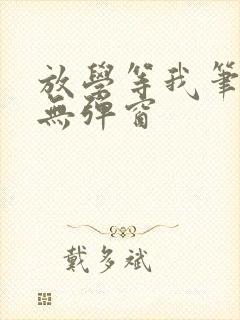 放學等我筆
無彈窗
戴多斌